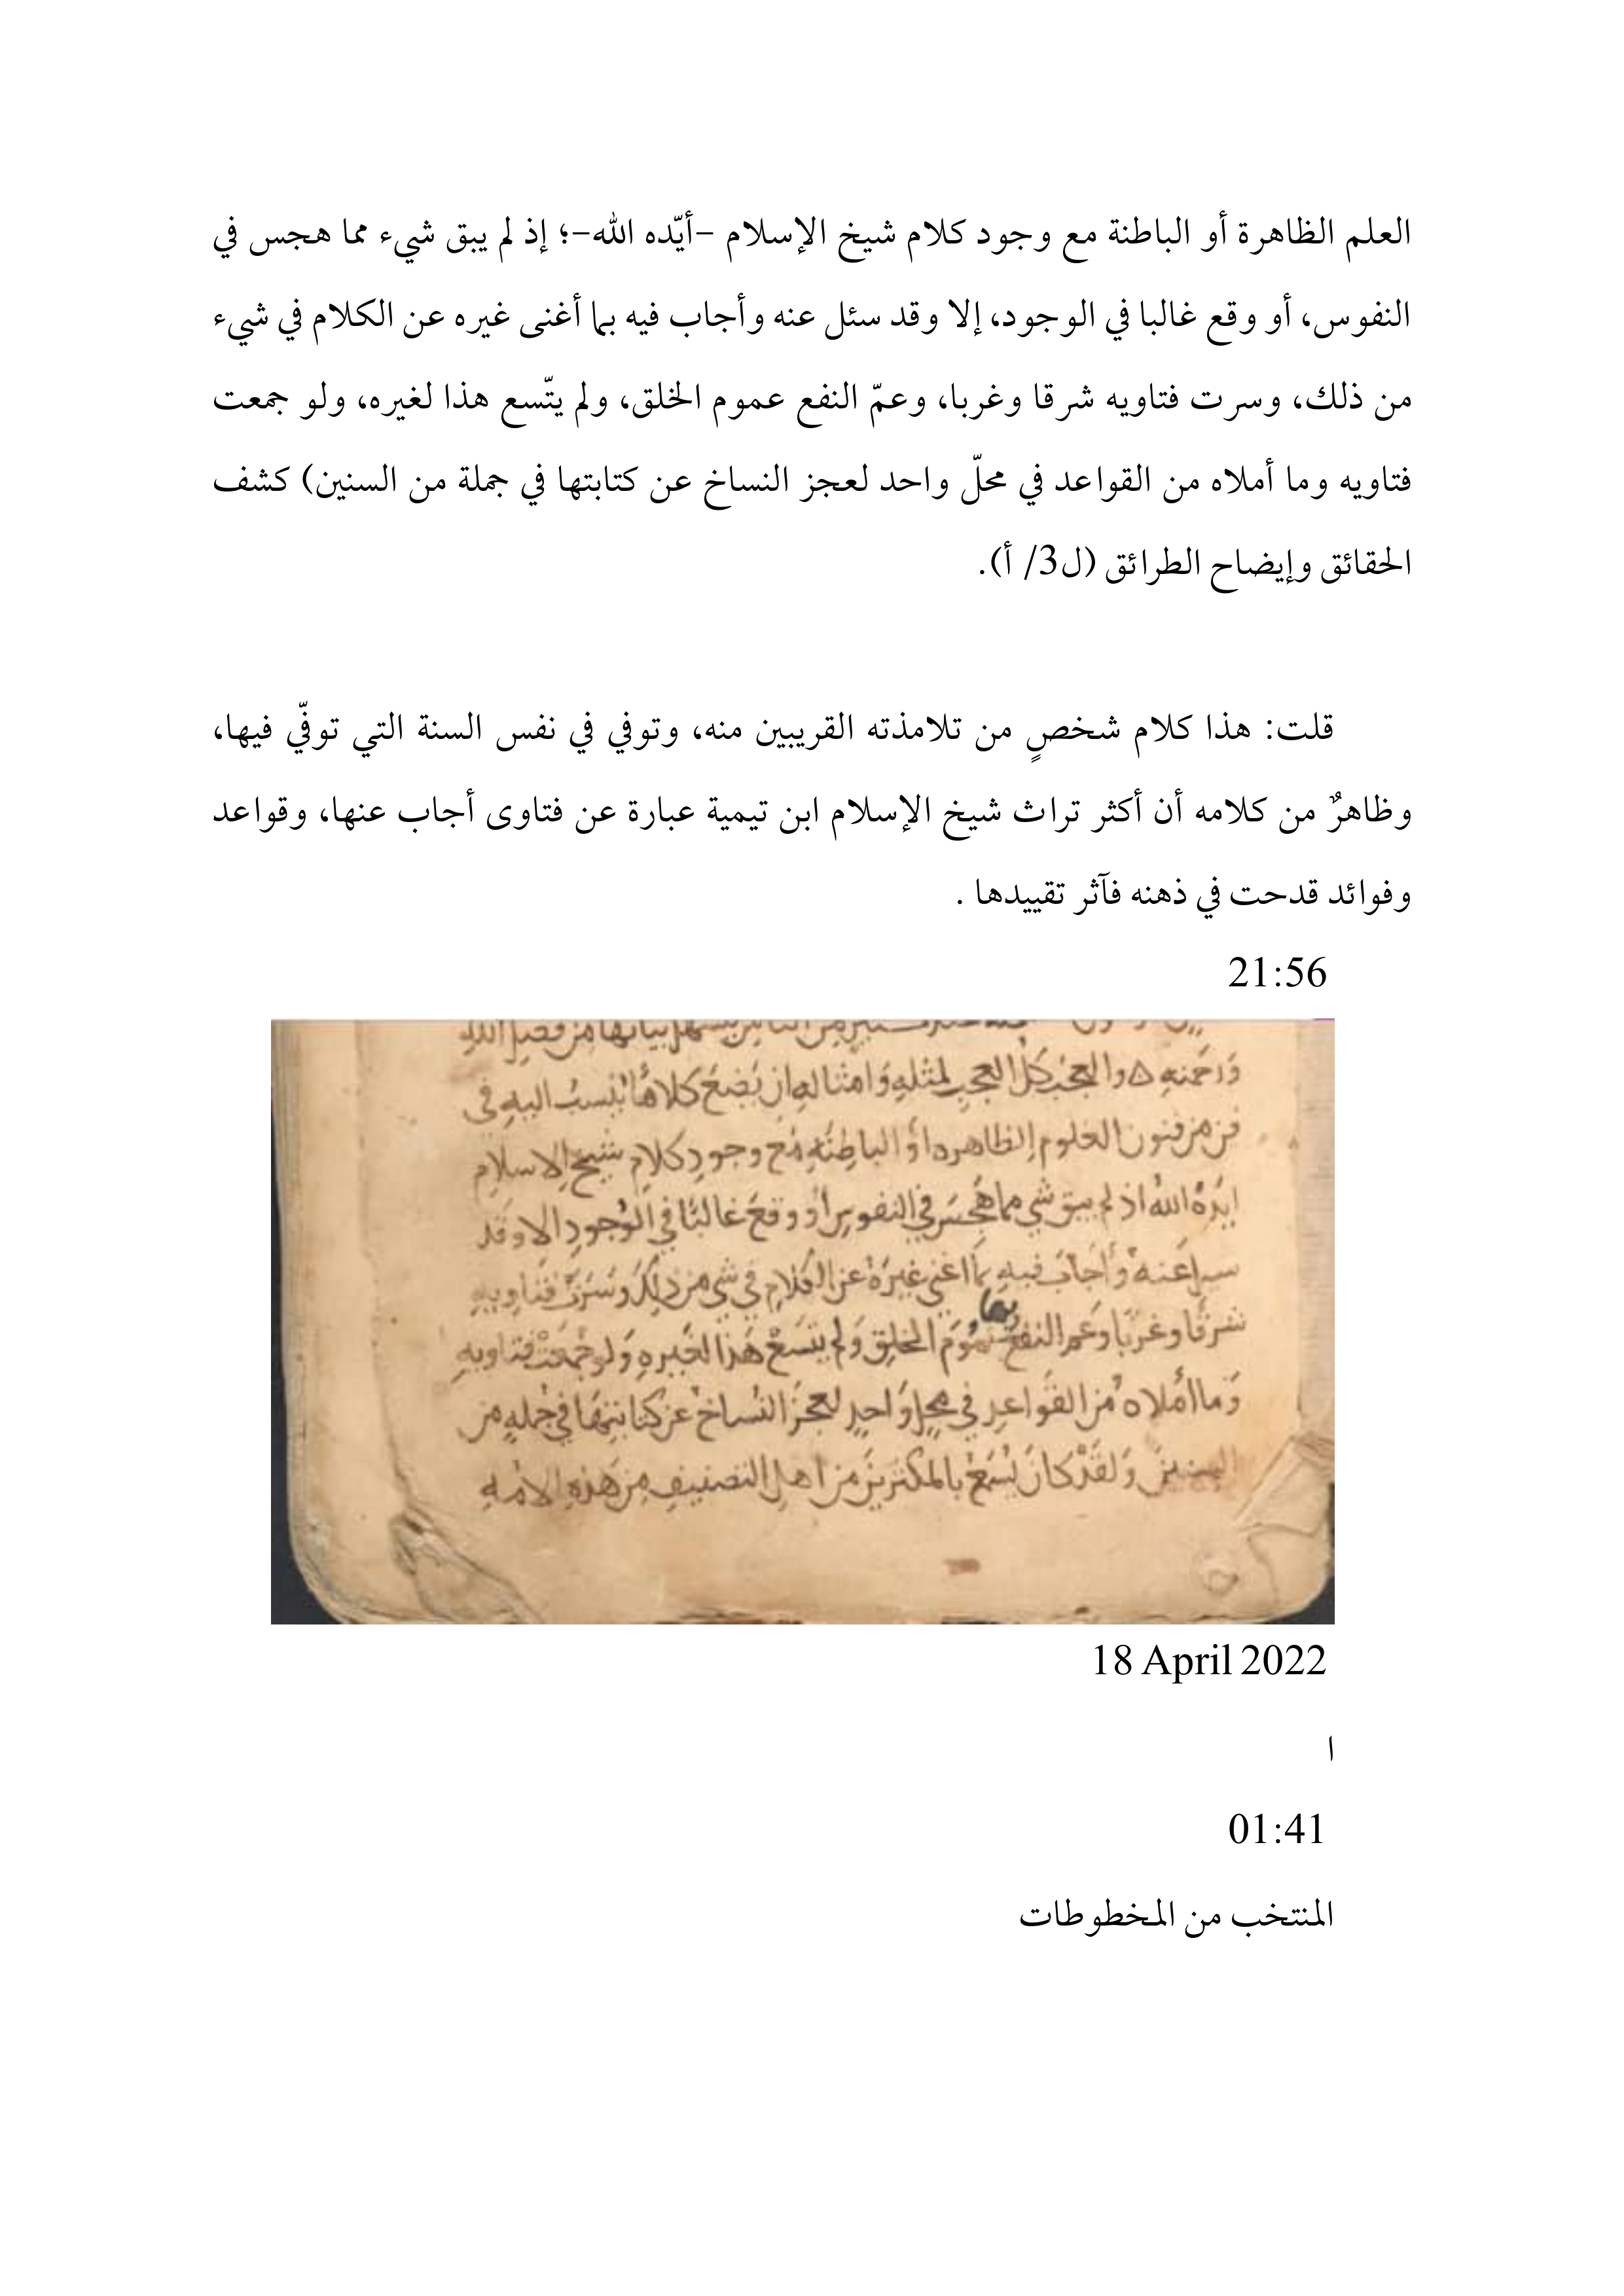 العلم الظاهرة أو الباطنة مع وجود كلام شيخ الإسلام –أيّده الله–؛ إذ لم يبق شيء مما هجس في
النفوس، أو وقع غالبا في الوجود، إلا وقد سئل عنه وأجاب فيه بما أغنى غيره عن الكلام في شيء
من ذلك، وسرت فتاويه شرقا وغربا، وعمّ النفع عموم الخلق، ولم يتّسع هذا لغيره، ولو جمعت
فتاويه وما أملاه من القواعد في محلّ واحد لعجز النساخ عن كتابتها في جملة من السنين) كشف
الحقائق وإيضاح الطرائق (ل3/ أ).
قلت: هذا كلام شخصٍ من تلامذته القريبين منه، وتوفي في نفس السنة التي توفّي فيها،
وظاهرٌ من كلامه أن أكثر تراث شيخ الإسلام ابن تيمية عبارة عن فتاوى أجاب عنها، وقواعد
وفوائد قدحت في ذهنه فآثر تقييدها .
21:56
وَرَحمته والعجب كل العجب لمثله وَامثاله ان يضع كلامًا ينسب اليه في
فن من فنون العلوم الظاهره اوْ الباطنه مع وجودِ كلام شيخ الاسلام
ايدهُ الله اذ لم يبق شي مما هجسَ في النفوس أو وقعَ غالبًا في الوُجودِ الا وقد
سيل عنه وَأجابَ فيه بما اغنى غيرهُ عن الكلام في شي من ذلكَ وَسَرَت فتاويه
شرقًا وغربًا وعم النفع عموم الخلق وَلم يتسعْ هَذا لغيره وَلو جمعَتْ فتاويه
وَما أملاه من القواعدِ في محلٍ وَاحدٍ لعجزَ النساخ عن كتابتها في جمله من
السنين وَلقدْ كانَ يُسمعْ بالمكثرينَ من اهل التصنيف من هَذه الامه
18 April 2022
ا
01:41
المنتخب من المخطوطات